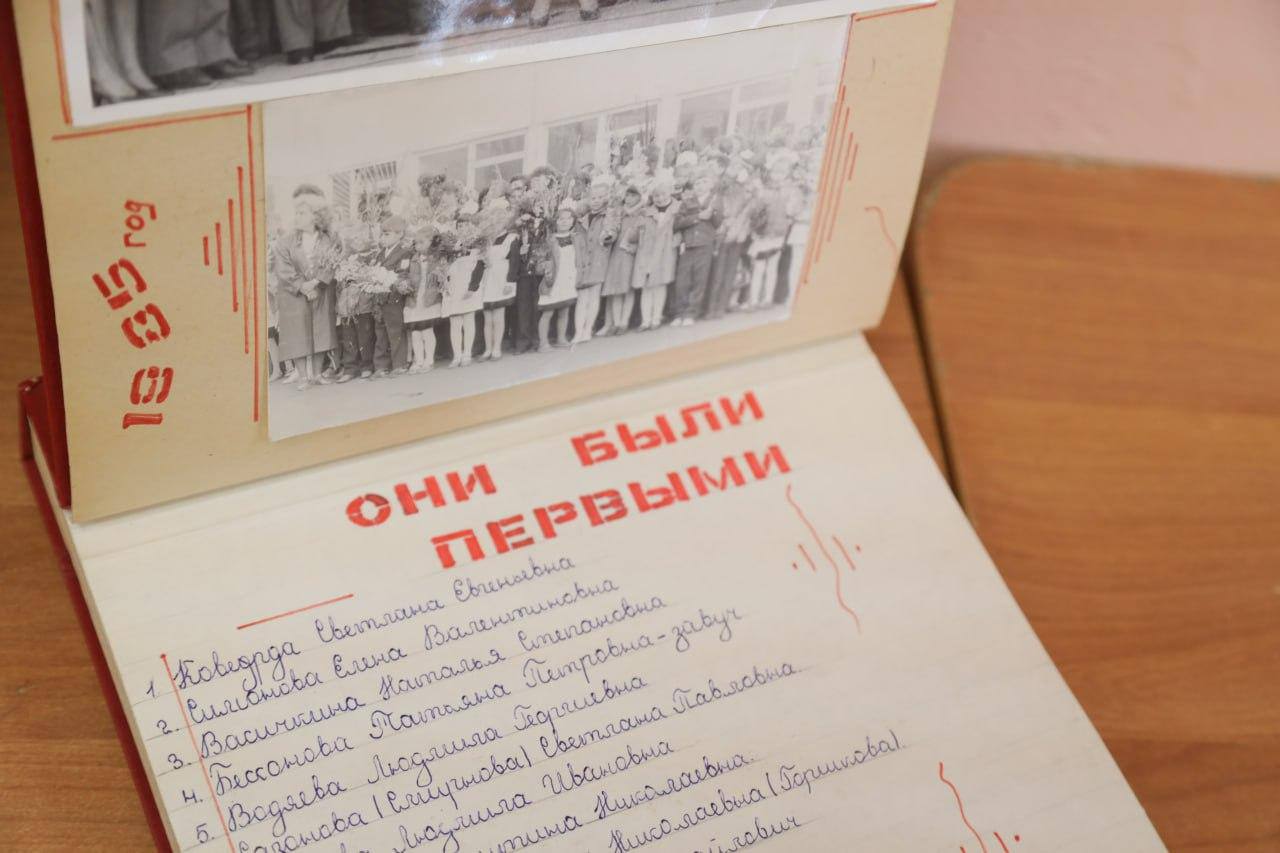 1985 год
ОНИ БЫЛИ
ПЕРВЫМИ
1. Коведрда Светлана Евгеньевна
2. Симонова Елена Валентиновна
3. Васичкина Наталья Степановна
4. Бессонова Татьяна Петровна - завуч
5. Водяева Людмила Георгиевна
Светлана Павловна
Людмила Ивановна
Николаевна.
Николаевна (Горшкова).